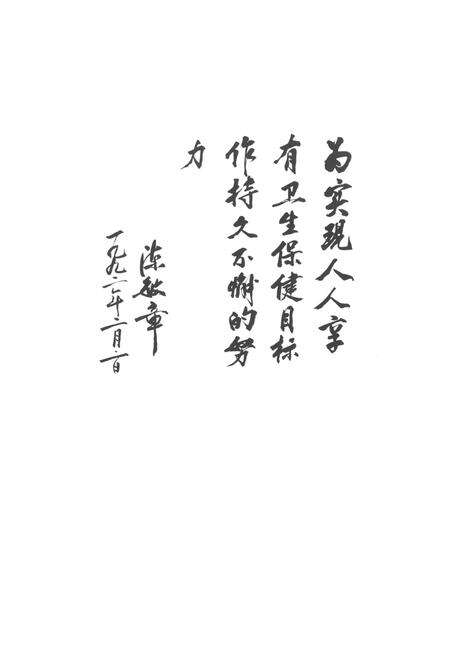 为实现人人享
有卫生保健目标
作持久不懈的努
力
陈敏章
一九九二年二月六日